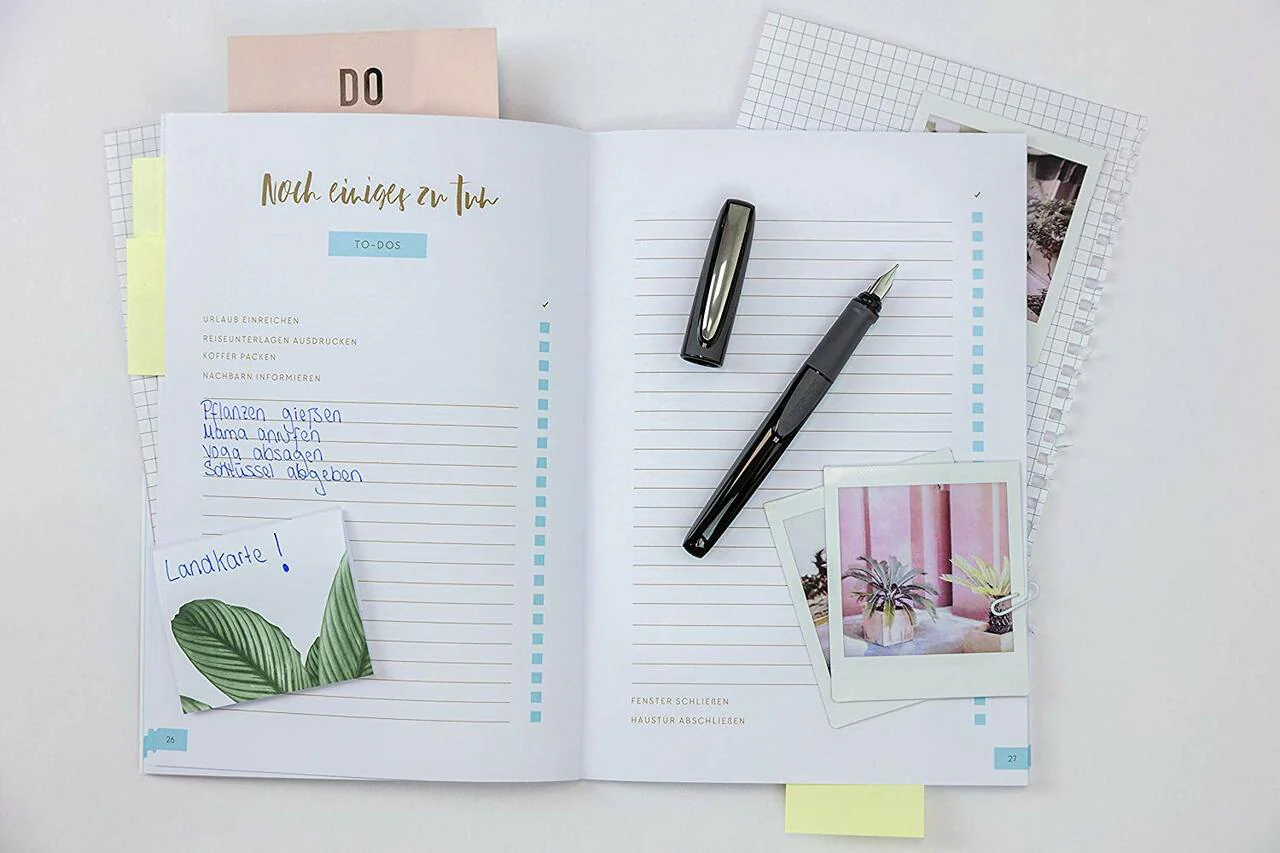 DO
Noch einiges zu tun
TO-DOS
✓
URLAUB EINREICHEN
REISEUNTERLAGEN AUSDRUCKEN
KOFFER PACKEN
NACHBARN INFORMIEREN
Pflanzen gießen
Mama anrufen
Yoga absagen
Schlüssel abgeben
Landkarte!
26
✓
FENSTER SCHLIEßEN
HAUSTÜR ABSCHLIEßEN
27